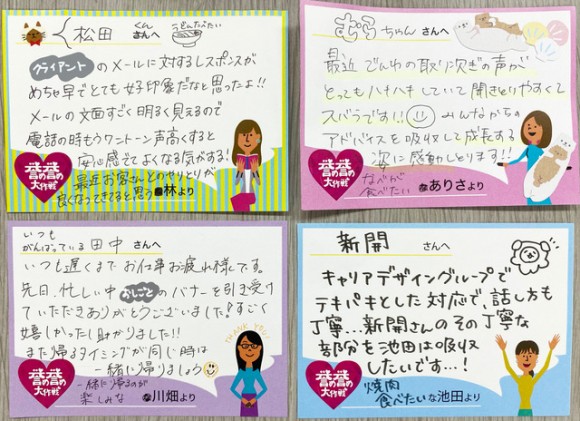 松田 くん さんへ
うどんたべたい
クライアントのメールに対するレスポンスが
めちゃ早でとても好印象だなと思ったよ!!
メールの文面すごく明るく見えるので
電話の時もワントーン声高くすると
安心感でてよくなる気がする!
最近お客さんとのやりとりが
良くなってきてると思う 林より
褒め褒め
大作戦
むら ちゃん さんへ
最近 でんわの取り次ぎの声が
とってもハキハキしていて聞きとりやすくて
スバラです!! みんなからの
アドバイスを吸収して成長する
姿に感動しとります!!
なべが
食べたい なありさより
褒め褒め
大作戦
いつも
がんばっている 田中 さんへ
いつも遅くまでお仕事お疲れ様です。
先日、忙しい中 おしごとのバナーを引き受け
ていただきありがとうございました!すごく
嬉しかったし助かりました!!
また帰るタイミングが同じ時は
一緒に帰りましょう
THANK YOU!
一緒に帰るのが
楽しみな な川畑より
褒め褒め
大作戦
新開 さんへ
キャリアデザイングループで
テキパキとした対応で、話し方も
丁寧…新開さんのその丁寧な
部分を池田は吸収
したいです…!
焼肉
食べたいな池田より
褒め褒め
大作戦